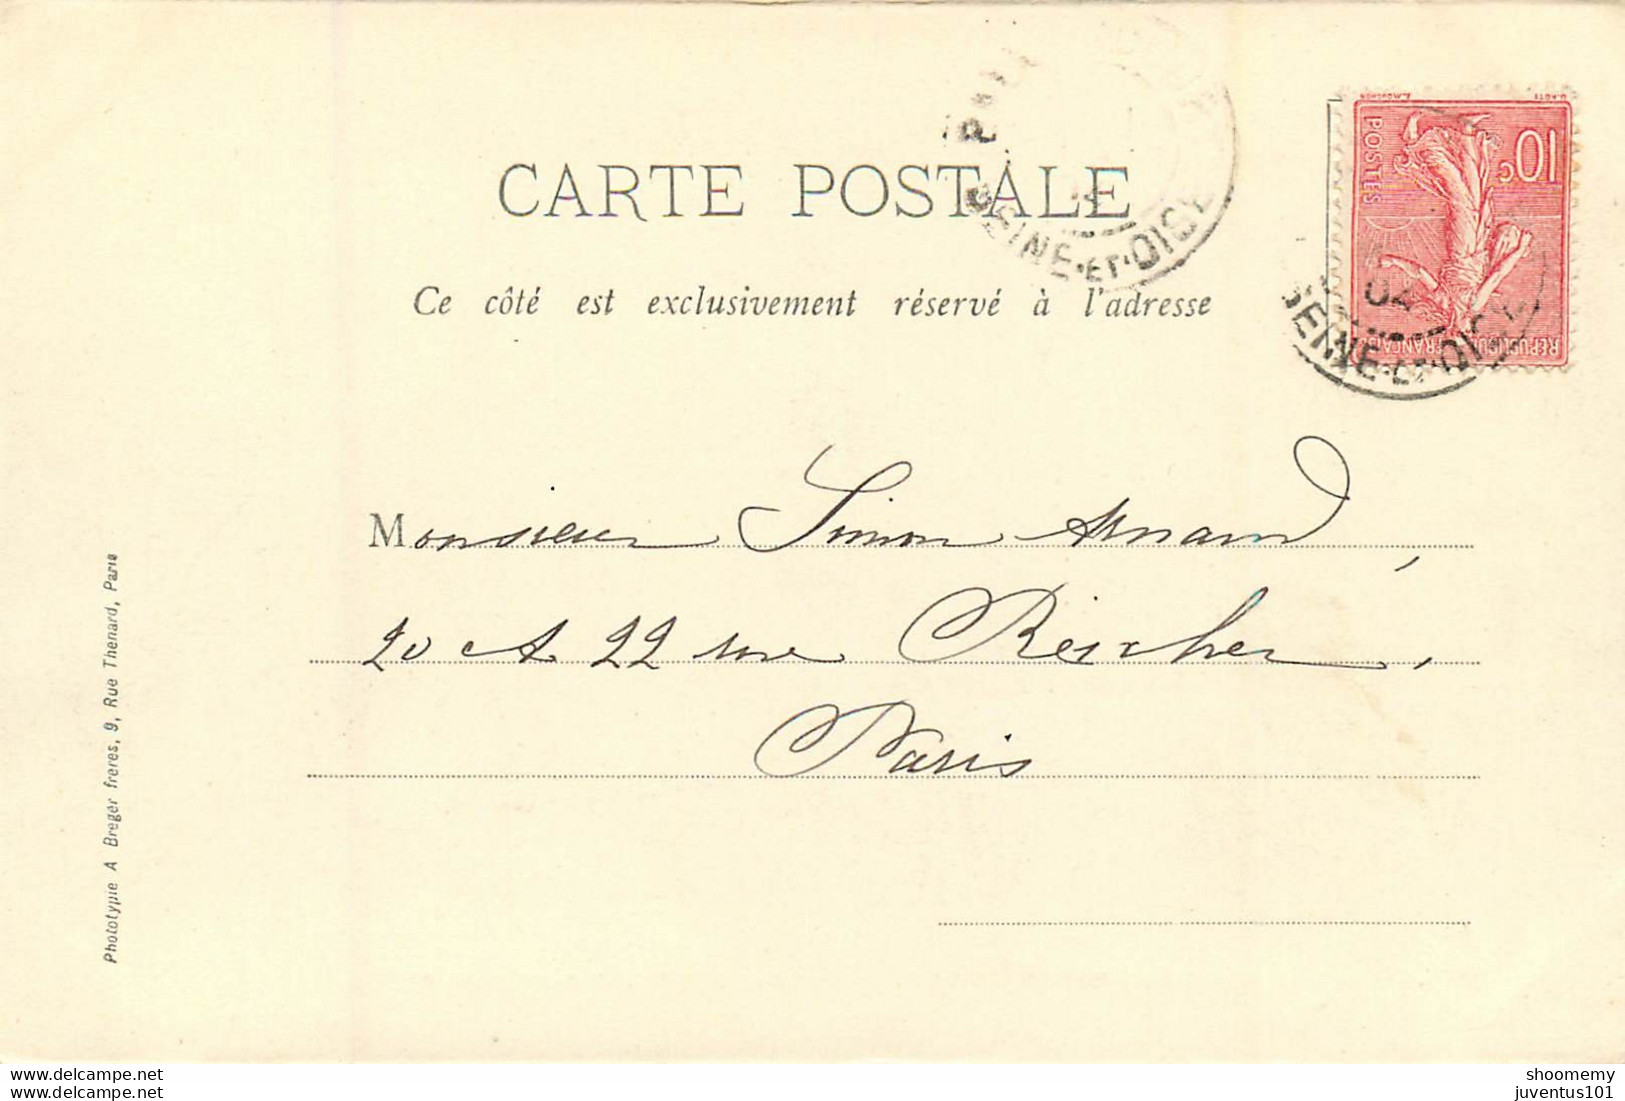 CARTE POSTALE
SEINE-ET-OISE
Ce côté est exclusivement réservé à l'adresse
10c
POSTES
04
SEINE-ET-OISE
Monsieur Simon Arnaud,
20 et 22 rue Richer,
Paris
Phototypie A Breger freres, 9, Rue Thenard, Paris
www.delcampe.net
shoomemy
juventus101